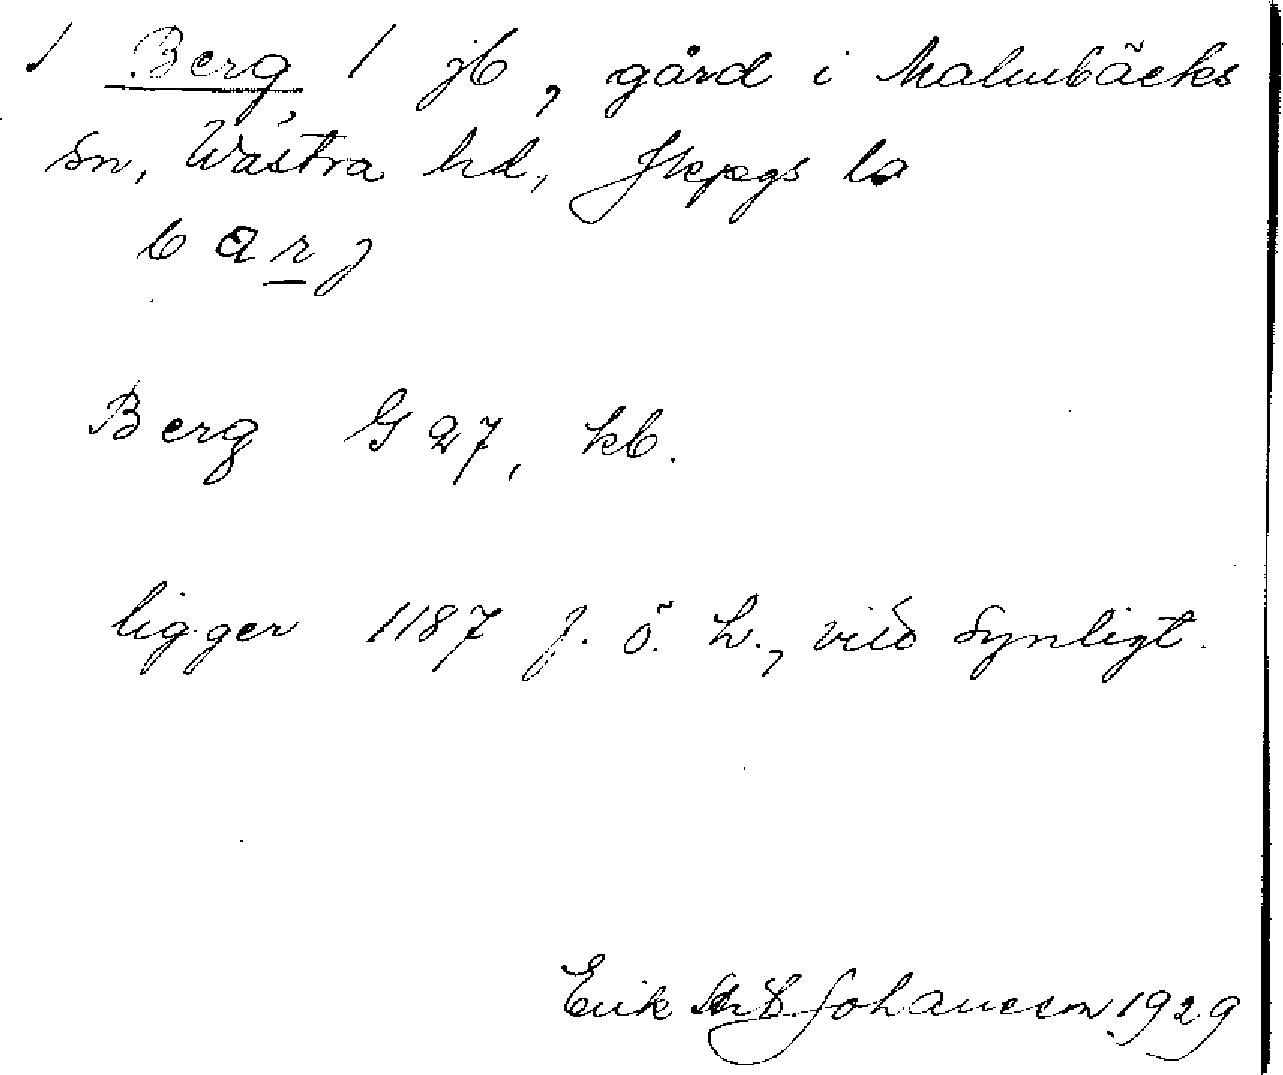 1 Berg 1 jb, gård i Malmbäcks
sn, Västra hd, Jkpgs lo
b a r j
Berg G 27, kb.
ligger 1187 f. ö. h., vida synligt.
Erik Johansson 1929